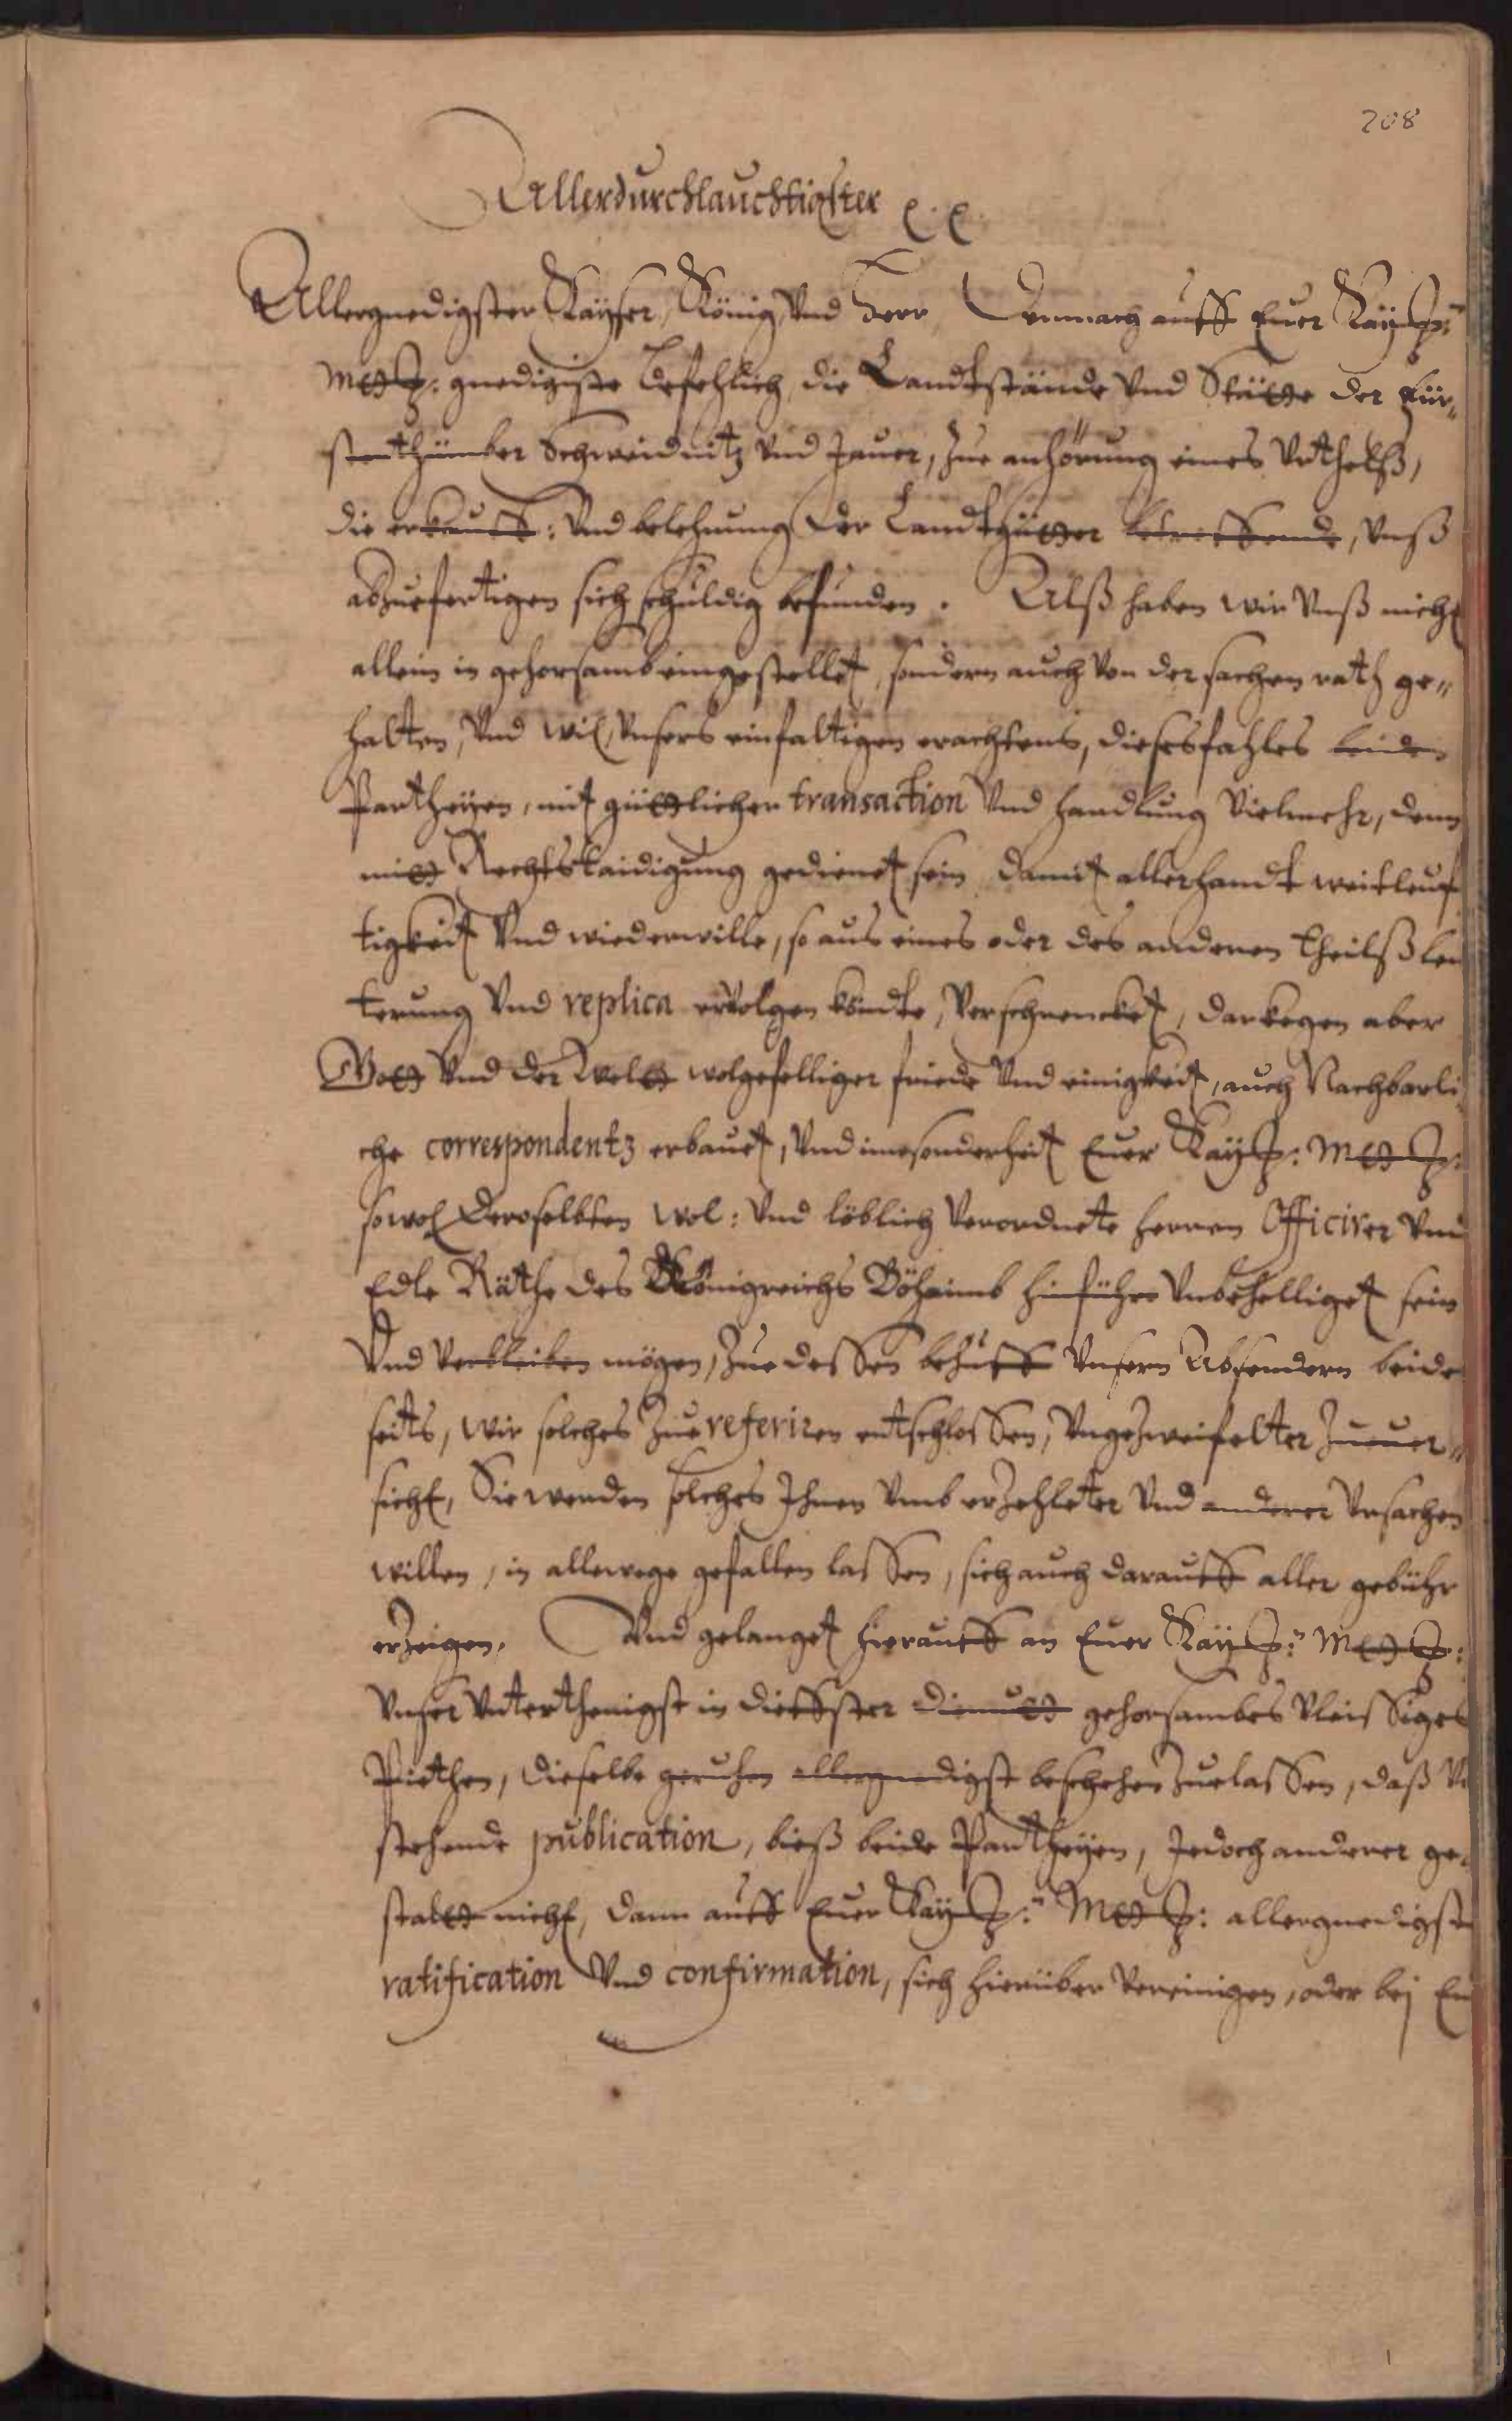 208
Allerdurchlauchtigster ꝛc. ꝛc.
Allergnedigster Kayser, König, Vnd Herr, Demnach auff Euer Kay:
Matt: gnedigiste befehlich, die Landtstände Vnd Städte der Für„
stenthümber Schweidnitz Vnd Jauer, Zue anhörung eines Vrthelß,
die erkauff: Vnd belehnung der Landtgütter betreffende, Vnß
abzuefertigen sich schuldig befunden. Alß haben wir Vnß nicht
allein in gehorsamb eingestellet, sondern auch Von der sachen rath ge„
halten, Vnd wil, Vnsers einfaltigen erachtens, diesesfahles beiden
Partheyen, mit güttlicher transaction Vnd handlung Vielmehr, denn
mitt Rechtstaidigung gedienet sein, damit allerhandt weitleuf
tigkeit Vnd wiederwille, so aus eines oder des anderen theilß leu
terung Vnd replica erVolgen köndte, Verschrencket, darkegen aber
Gott Vnd der Weltt wolgefelliger friede Vnd einigkeit, auch Nachbarli
che correspondentz erbauet, Vnd innsonderheit Euer Kay: Matt:
sowol Deroselbten Wol: Vnd löblich Verordnete herren Officirer Vnd
Edle Räthe des Königreichs Böheimb hinführo Vnbehelliget sein
Vnd Verbleiben mögen, Zue dessen behuff Vnsern Absendern beider
seits, wir solches Zue referiren entschlossen, Vngezweifelter Zuuer„
sicht, Sie werden solches Ihnen Vmb erzehleter Vnd anderer Vrsachen
willen, in allewege gefallen lassen, sich auch darauff aller gebühr
erzeigen. Vnd gelanget hierauff an Euer Kay: Matt:
Vnser Vnterthenigst in dieffster diemutt gehorsambes Vleissiges
Pitthen, dieselbe geruhen allergnedigst beschehen Zuelassen, daß
stehende publication, bieß beide Partheyen, Jedoch anderer ge„
staltt nicht, dann auff Euer Kay: Matt: allergnedigste
ratification Vnd confirmation, sich hierüber Vereinigen, oder bej Eu